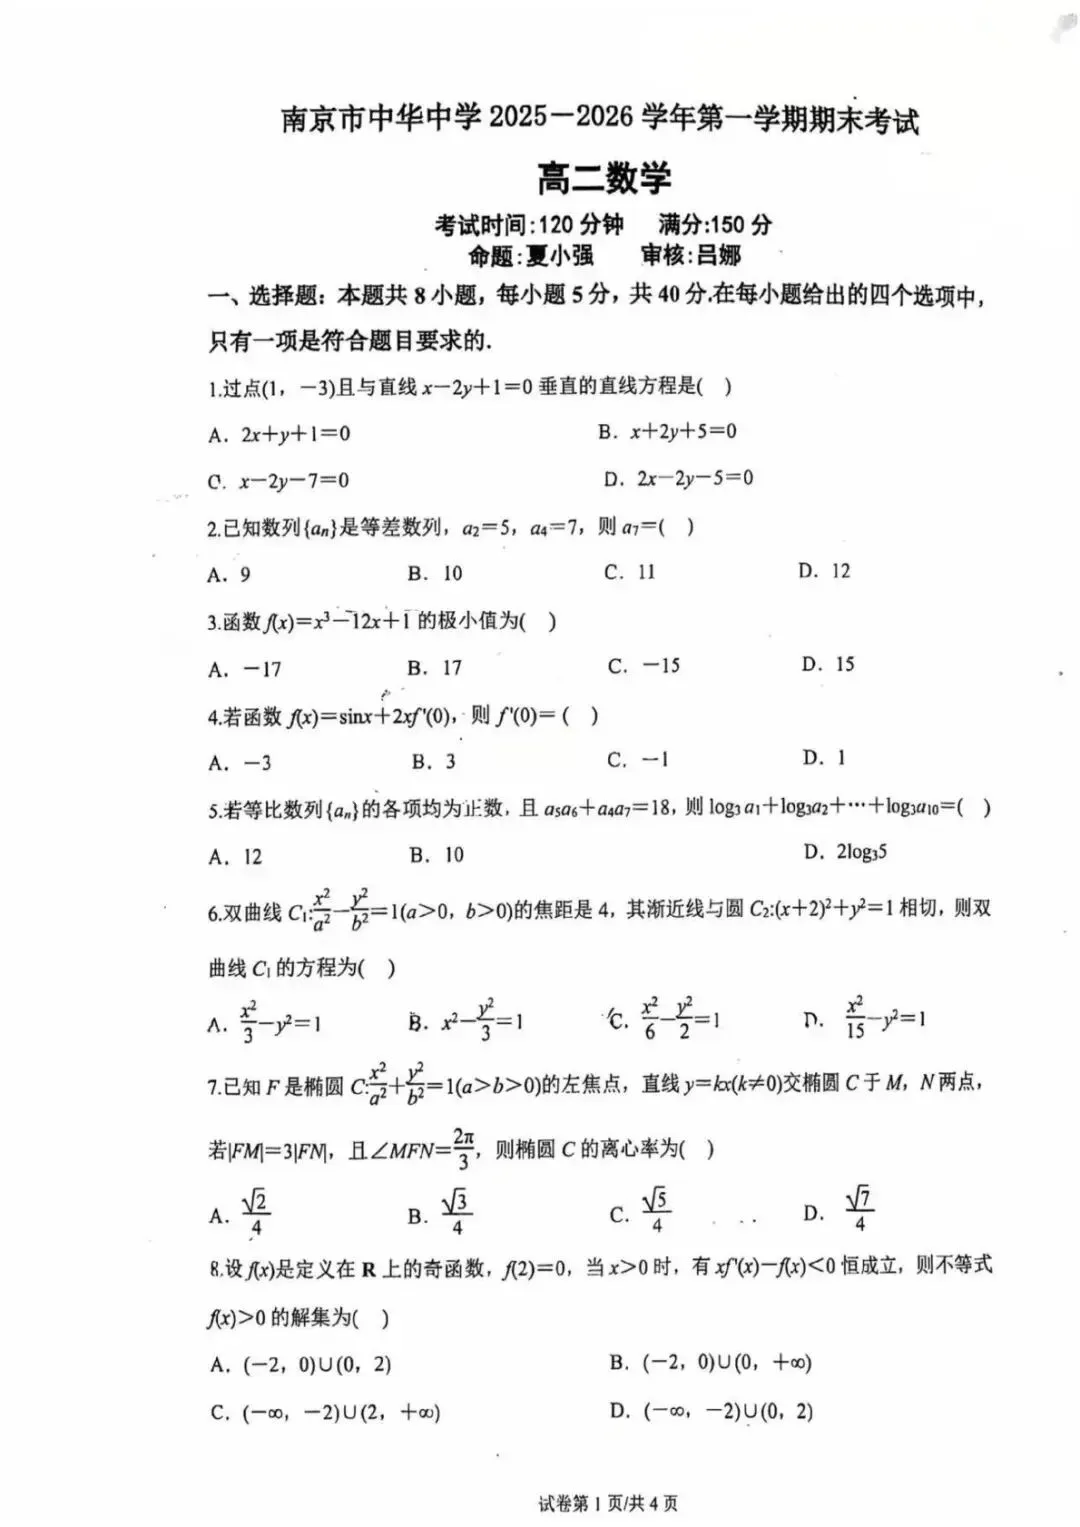 南京市中华中学 2025－2026 学年第一学期期末考试
高二数学
考试时间:120 分钟 满分:150 分
命题:夏小强 审核:吕娜
一、选择题：本题共 8 小题，每小题 5 分，共 40 分.在每小题给出的四个选项中，
只有一项是符合题目要求的.
1.过点(1，－3)且与直线 x－2y＋1＝0 垂直的直线方程是( )
A．2x＋y＋1＝0 B．x＋2y＋5＝0
C．x－2y－7＝0 D．2x－2y－5＝0
2.已知数列{aₙ}是等差数列，a₂＝5，a₄＝7，则 a₇＝( )
A．9 B．10 C．11 D．12
3.函数 f(x)＝x³－12x＋1 的极小值为( )
A．－17 B．17 C．－15 D．15
4.若函数 f(x)＝sinx＋2xf′(0)，则 f′(0)＝( )
A．－3 B．3 C．－1 D．1
5.若等比数列{aₙ}的各项均为正数，且 a₅a₆＋a₄a₇＝18，则 log₃ a₁＋log₃a₂＋⋯＋log₃a₁₀＝( )
A．12 B．10 D．2log₃5
6.双曲线 C₁:x²/a²－y²/b²＝1(a＞0，b＞0)的焦距是 4，其渐近线与圆 C₂:(x＋2)²＋y²＝1 相切，则双
曲线 C₁ 的方程为( )
A．x²/3－y²＝1 B．x²－y²/3＝1 C．x²/6－y²/2＝1 D．x²/15－y²＝1
7.已知 F 是椭圆 C:x²/a²＋y²/b²＝1(a＞b＞0)的左焦点，直线 y＝kx(k≠0)交椭圆 C 于 M，N 两点，
若|FM|＝3|FN|，且∠MFN＝2π/3，则椭圆 C 的离心率为( )
A．√2/4 B．√3/4 C．√5/4 D．√7/4
8.设 f(x)是定义在 R 上的奇函数，f(2)＝0，当 x＞0 时，有 xf′(x)－f(x)＜0 恒成立，则不等式
f(x)＞0 的解集为( )
A．(－2，0)∪(0，2) B．(－2，0)∪(0，＋∞)
C．(－∞，－2)∪(2，＋∞) D．(－∞，－2)∪(0，2)
试卷第 1 页/共 4 页